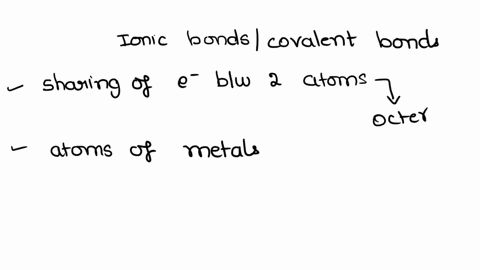 Ionic bonds/covalent bonds
sharing of e⁻ blw 2 atoms
octer
atoms of metals